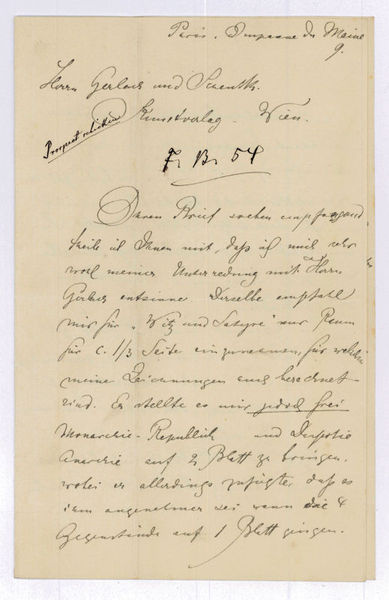 Paris. Impasse du Maine
9.
Herrn Gerlach und Schenk.
Kunstverlag. Wien.
Prospect schicken
F. B. 54
Deren Brief soeben empfangend
theile ich Ihnen mit, daß ich mich sehr
wohl meiner Unterredung mit Herrn
Gerlach entsinne. Derselbe empfahl
mir für "Witz und Satyre" nur Raum
für c. 1/3 Seite einzunehmen, für welche
meine Zeichnungen auch berechnet
sind. Er stellte es mir jedoch frei
Monarchie-Republick und Despotie
Anarchie auf 2 Blatt zu bringen.
wobei er allerdings zufügte, daß es
ihm angenehmer sei wenn die 4
Gegenstände auf 1 Blatt gingen.